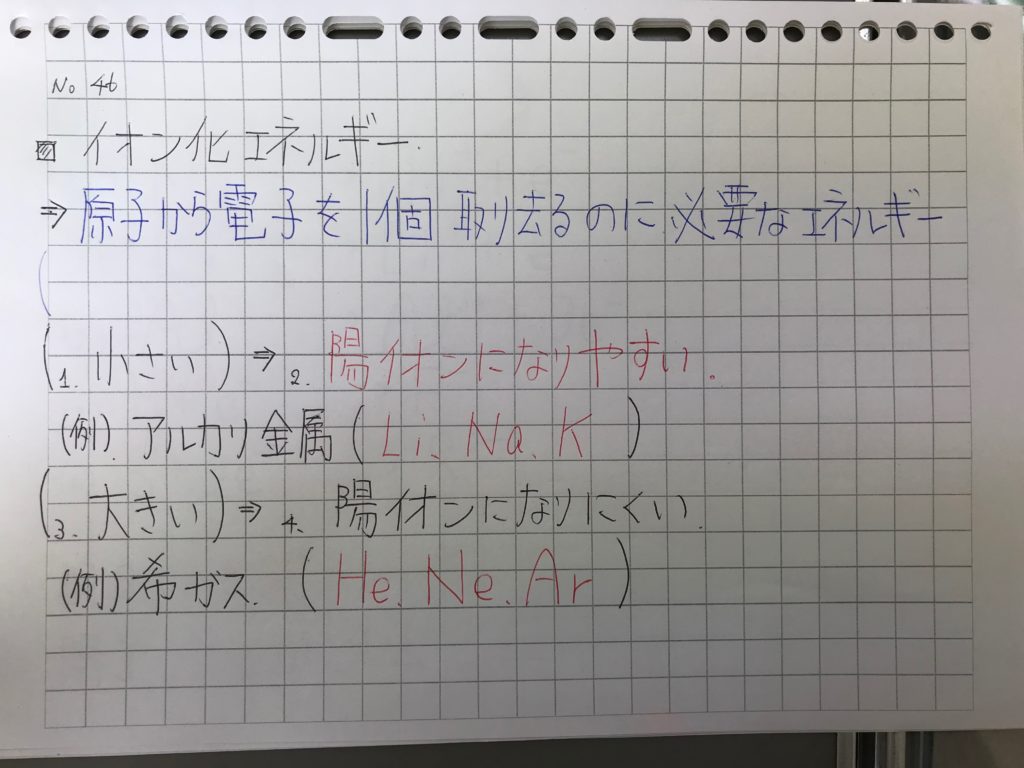 No 46
▨ イオン化エネルギー.
⇒ 原子から電子を1個取り去るのに必要なエネルギー
(1. 小さい) ⇒ 2. 陽イオンになりやすい.
(例). アルカリ金属 (Li、Na、K)
(3. 大きい) ⇒ 4. 陽イオンになりにくい.
(例) 希ガス. (He、Ne、Ar)